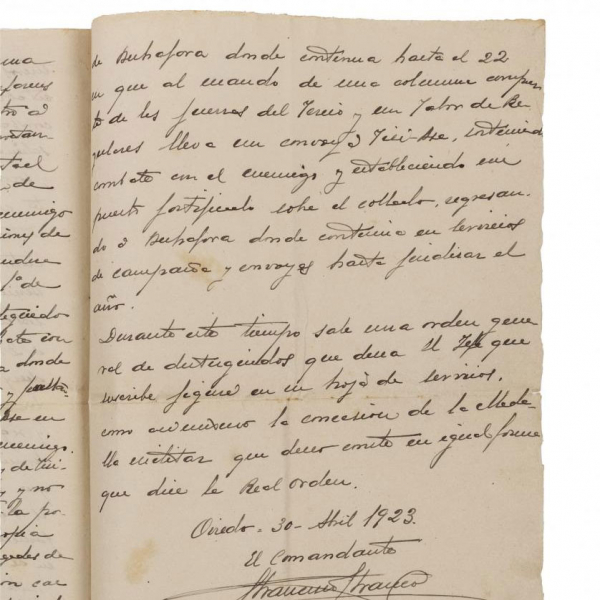 de Buhafora donde continua hasta el 22
en que al mando de una columna compues
ta de las fuerzas del Tercio y un Tabor de Re
gulares lleva un convoy a Tizi-Ase, sosteniendo
combate con el enemigo y estableciendo un
puesto fortificado sobre el collado, regresan-
do a Buhafora donde continua en servicios
de campaña y convoyes hasta finalizar el
año.
Durante este tiempo sale una orden gene
ral de distinguidos que desea el Jefe que
suscribe figure en su hoja de servicios,
como asimismo la concesión de la Meda-
lla militar que deseo conste en igual forma
que dice la Real orden.
Oviedo - 30 - Abril 1923.
El Comandante
Francisco Franco
ma
contan
de
enemigo
de
de
con
donde
en
enemigo.
y no
la po-
de